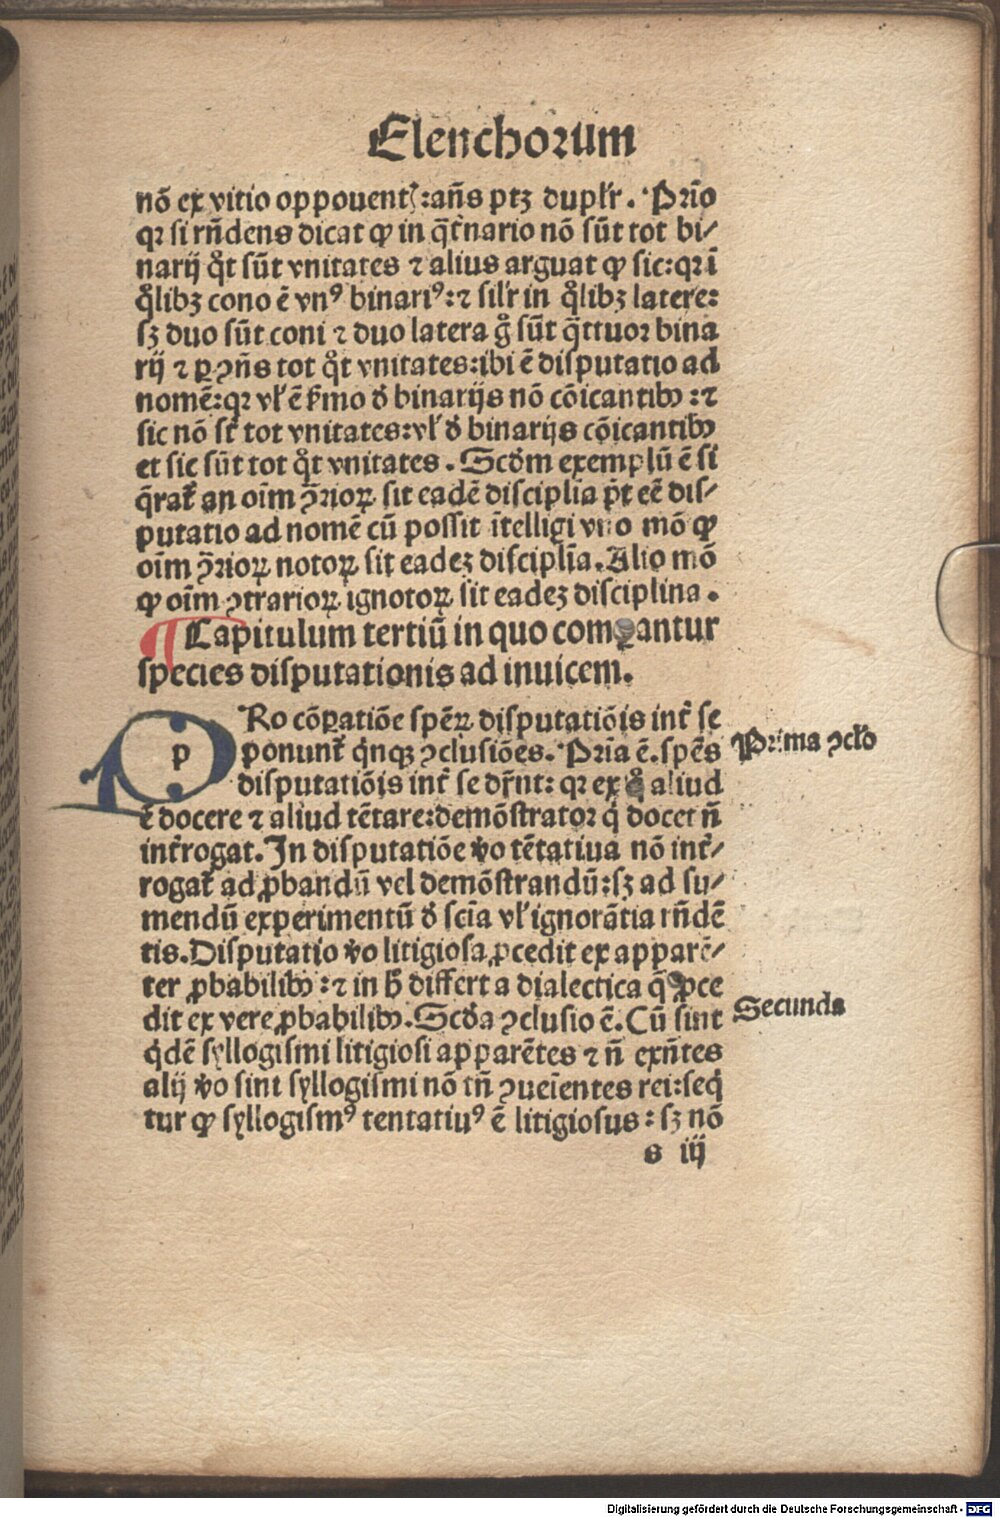 Elenchorum
nō ex vitio oppouentꝭ:añs ptꝫ duplr̄. Prīo
qꝛ si rñdens dicat ꝙ in q̄t̄nario nō sūt tot bi/
narij q̊t sūt vnitates ⁊ alius arguat ꝙ sic:qꝛ ī
q̊libꝫ cono ē vnꝰ binariꝰ:⁊ sil'r in q̊libꝫ latere:
sꝫ duo sūt coni ⁊ duo latera g̊ sūt q̄ttuoꝛ bina
rij ⁊ ꝑ ꝯñs tot q̊t vnitates:ibi ē disputatio ad
nomē:qꝛ vl' ē ẜmo ð binarijs nō cōicantibꝰ :⁊
sic nō st̄ tot vnitates:vl' ð binarijs cōicantibꝰ
et sic sūt tot q̊t vnitates. Scðm exemplū ē si
q̄rat̄ an oīm ꝯ̄rioꝝ sit eadē disciplīa p̄t eē dis/
putatio ad nomē cū possit ītelligi vno mō ꝙ
oīm ꝯ̄rioꝝ notoꝝ sit eadeꝫ disciplīa. Alio mō
ꝙ oīm ꝯtrarioꝝ ignotoꝝ sit eadeꝫ disciplina.
¶ Capitulum tertiū in quo comꝑantur
species disputationis ad inuicem.
p
PRo cōꝑatiōe spēꝝ disputatiōis int̄ se
ponunt̄ qͥnqꝫ ꝯclusiōes. Prīa ē. spēs
disputatiōis int̄ se dr̄nt: qꝛ ex q̊ aliud
ē docere ⁊ aliud tētare:demōstratoꝛ qͥ docet ñ
int̄rogat. In disputatiōe ꝟo tētatiua nō int̄/
rogat̄ ad ꝓbandū vel demōstrandū:sꝫ ad su/
mendū experimentū ð scīa vl' ignorātia rñdē
tis. Disputatio ꝟo litigiosa ꝓcedit ex apparē/
ter ꝓbabilibꝰ :⁊ in h̄ differt a dialectica q̄ ꝓce
dit ex vere ꝓbabilibꝰ. Scða ꝯclusio ē. Cū sint
qͥdē syllogismi litigiosi apparētes ⁊ ñ exñtes
alij ꝟo sint syllogismi nō tñ ꝯueīentes rei:seqͥ
tur ꝙ syllogismꝰ tentatiuꝰ ē litigiosus: sꝫ nō
s iij
Prima ꝯcło
Secunda
Digitalisierung gefördert durch die Deutsche Forschungsgemeinschaft - DFG